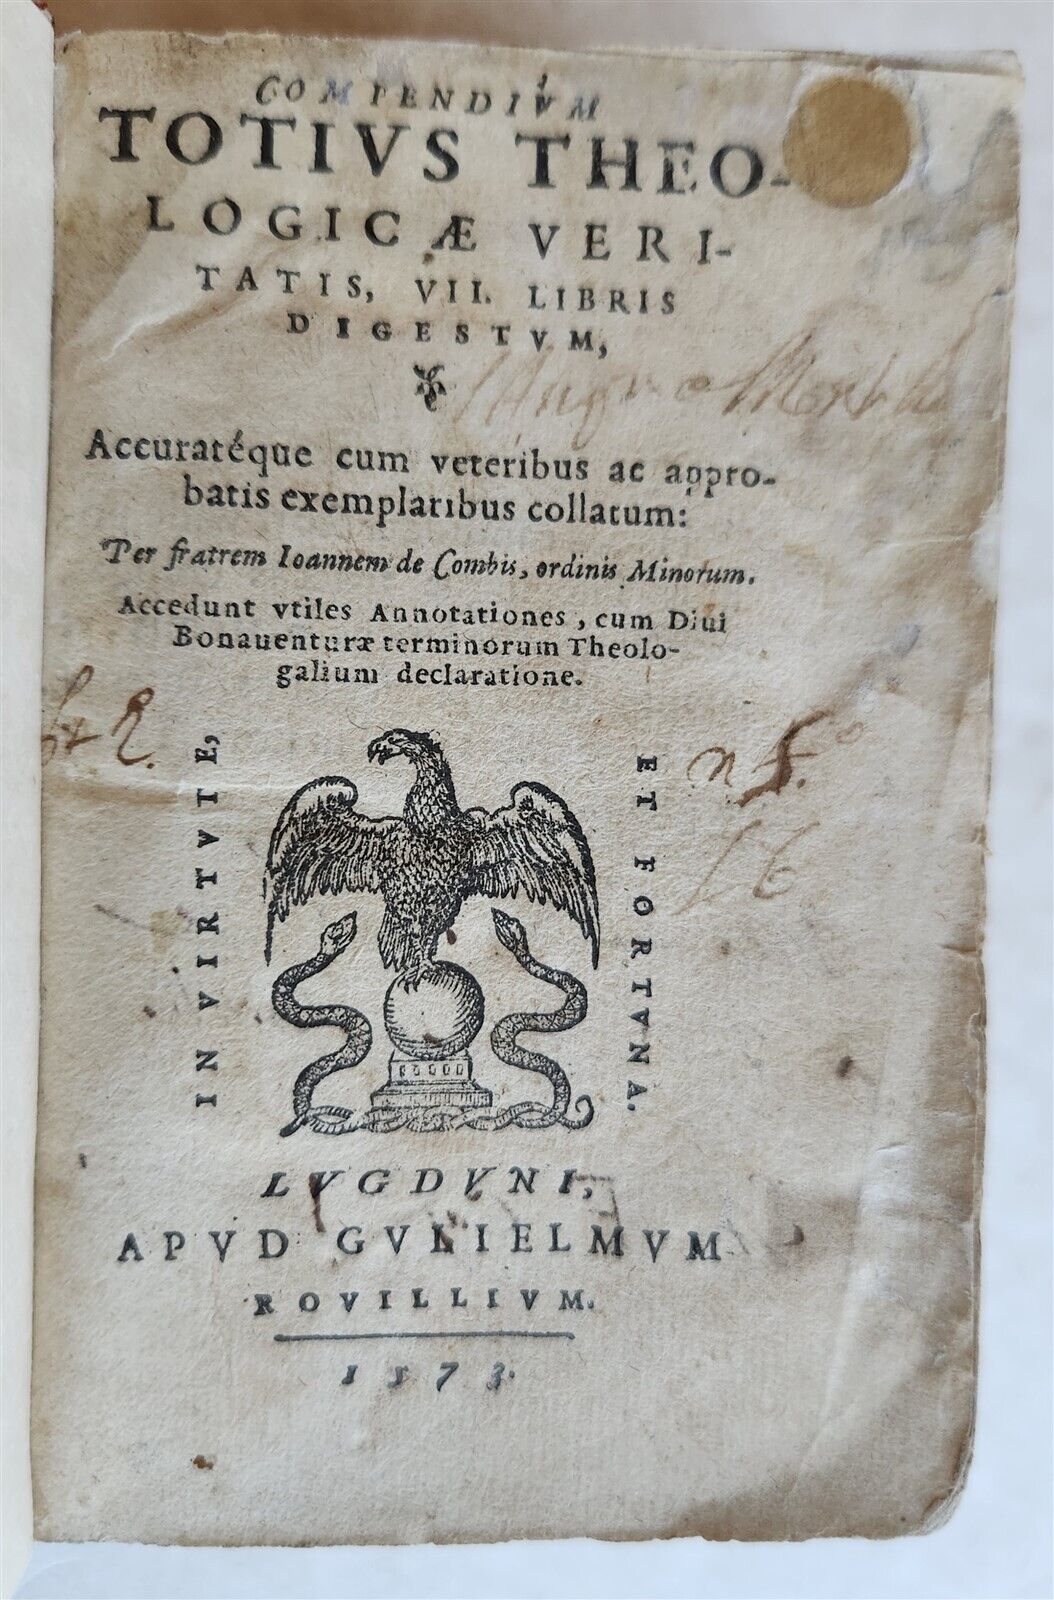 COMPENDIVM
TOTIVS THEO-
LOGICÆ VERI-
TATIS, VII. LIBRIS
DIGESTVM,
Accuratéque cum veteribus ac appro-
batis exemplaribus collatum:
Per fratrem Ioannem de Combis, ordinis Minorum.
Accedunt vtiles Annotationes, cum Diui
Bonauenturæ terminorum Theolo-
galium declaratione.
IN VIRTVTE,
ET FORTVNA.
LVGDVNI,
APVD GVLIELMVM
ROVILLIVM.
1573.